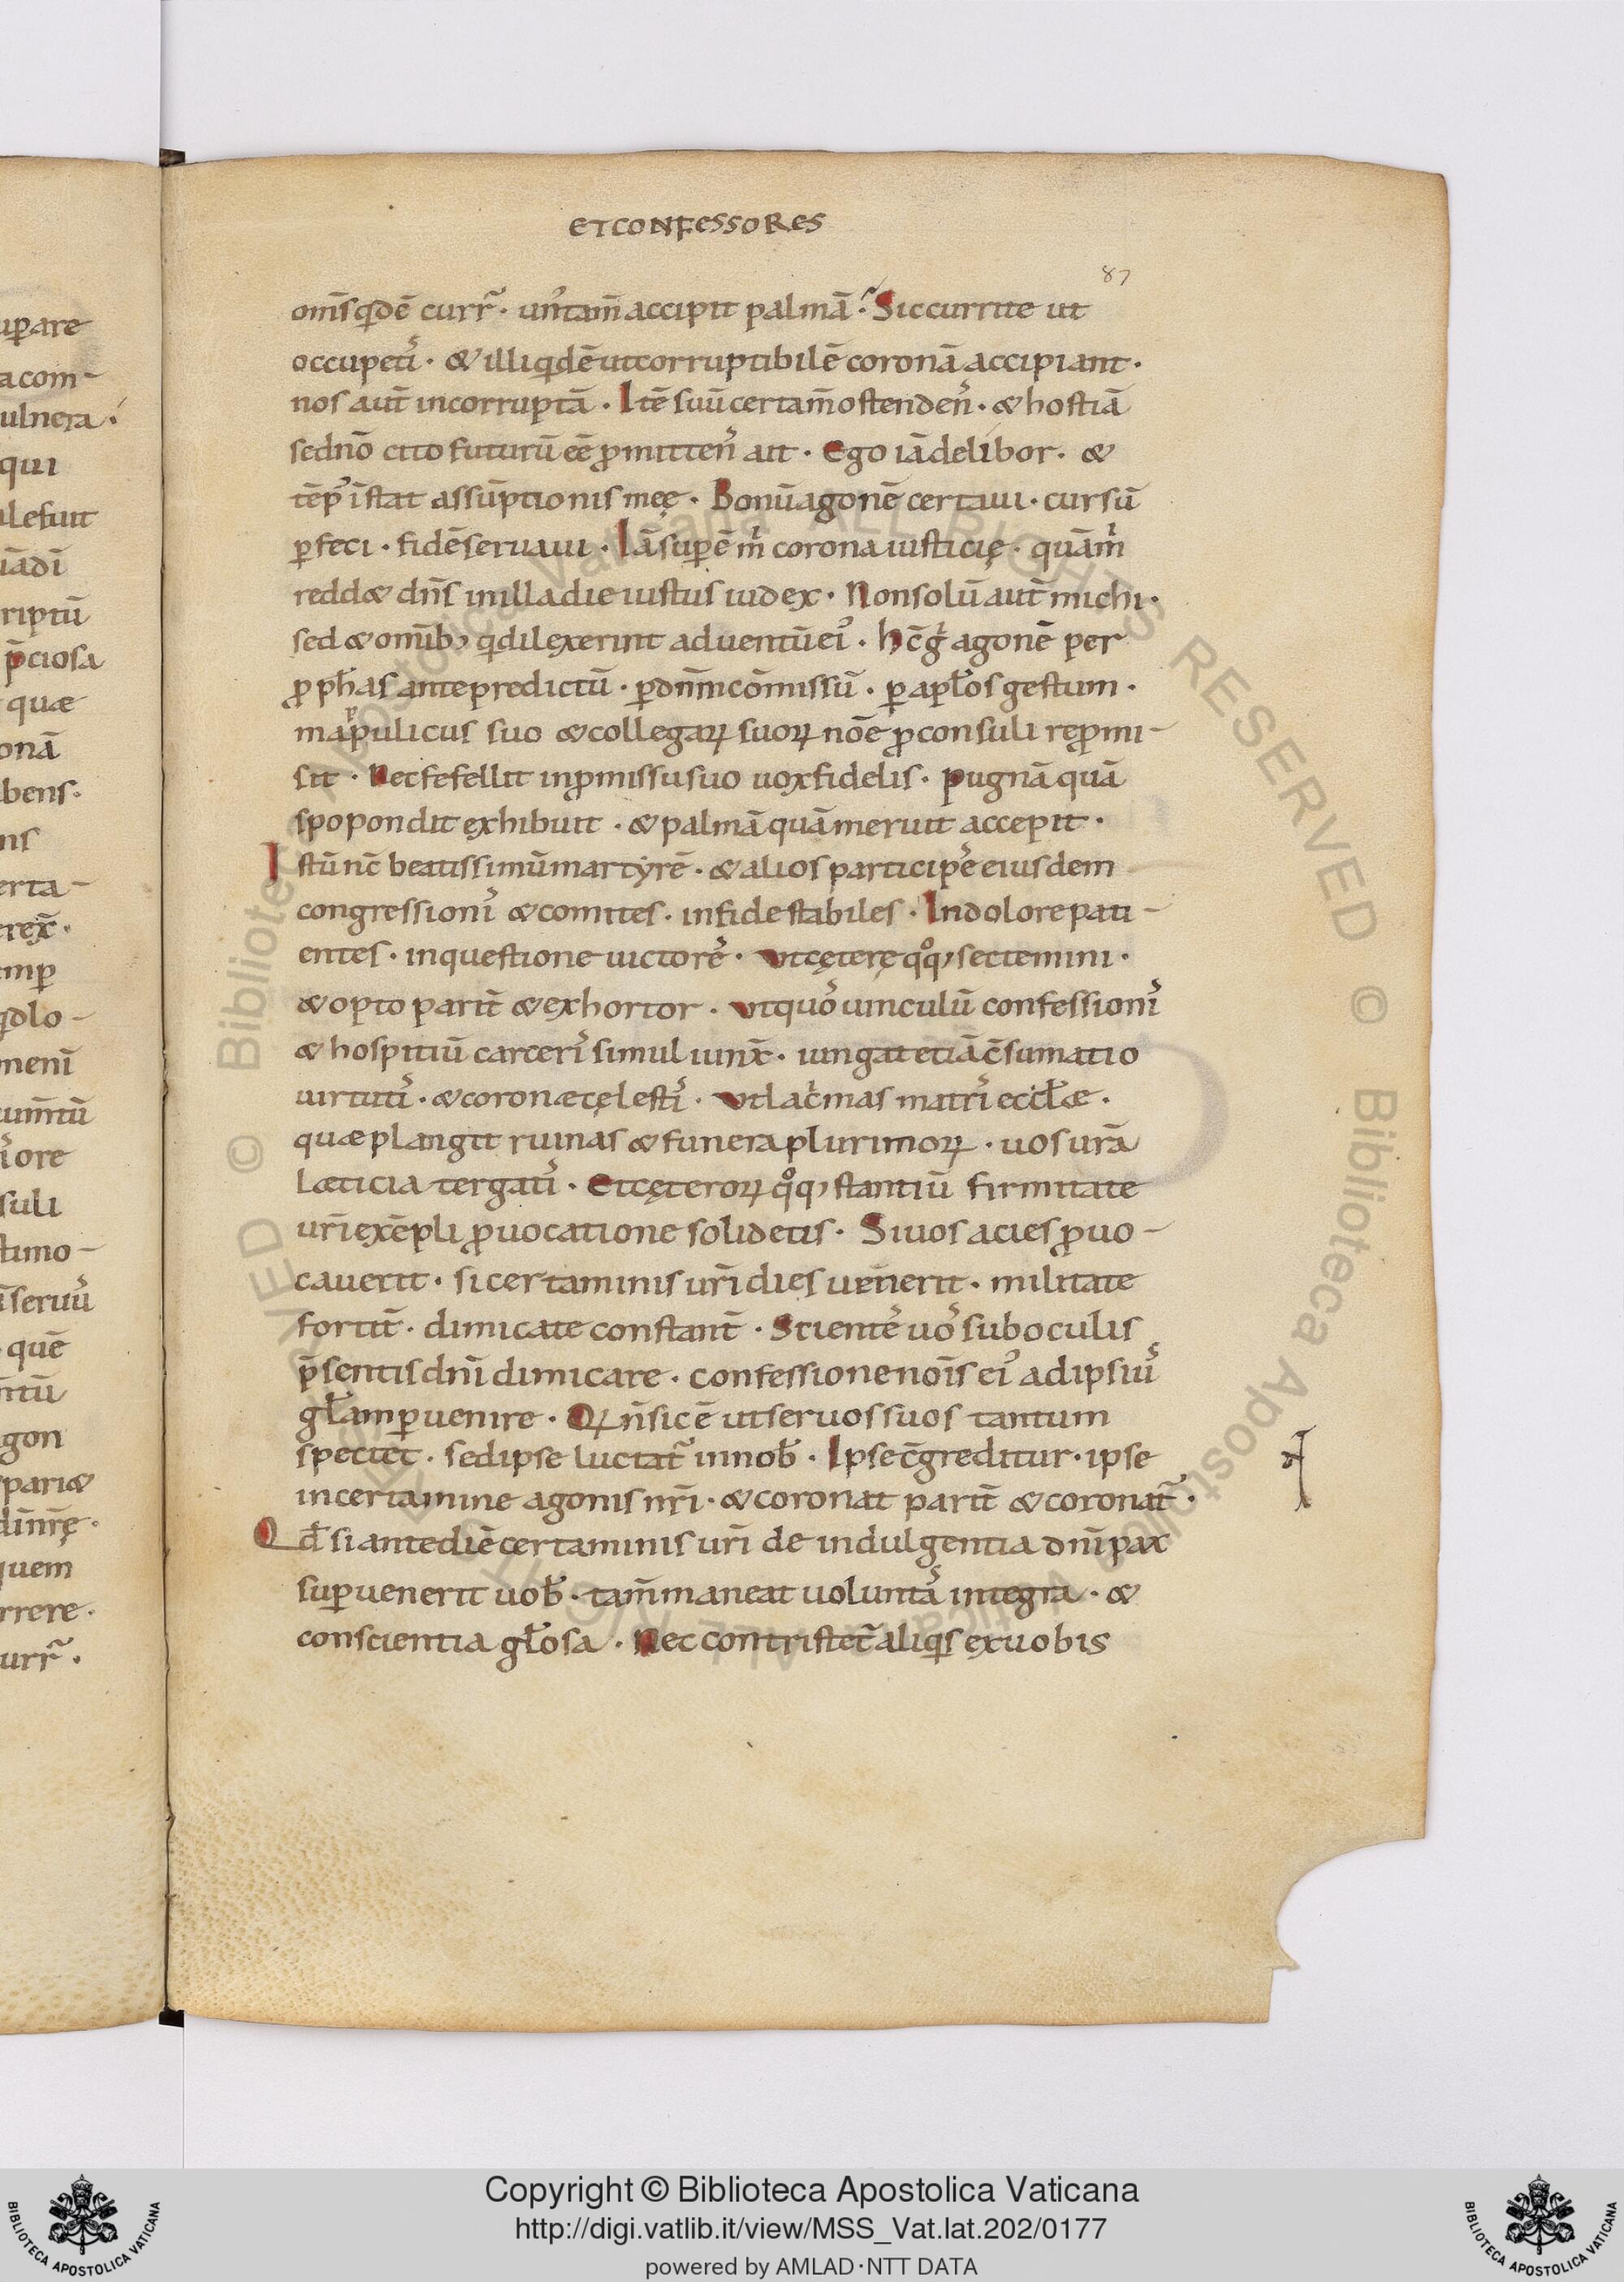 ET CONFESSORES
87
om̄s qdē curr̃. un᷒ tam̄ accipit palmā. Sic currite ut
occupetis. & illi qdē ut corruptibilē coronā accipiant.
nos aut̄ incorruptā. Itē suū certam̄ ostendens. & hostiā
se dn̄o cito futurū eē ꝓmittens ait. Ego iā delibor. &
tēp᷒ īstat assūptionis meę. Bonū agonē certaui. cursū
ꝑfeci. fidē seruaui. Iā suꝑē m̍ corona iusticię. quā m̍
redd& dn̄s in illa die iustus iudex. Non solū aut̄ michi.
sed & omīb; q dilexerint aduentū ei᷒. hc̄ g̍ agonē per
ꝓph̄as ante predictū. ꝑ dn̄m cōmissū. ꝑ apl̄os gestum.
mapꝑulicus suo & collegaꝝ suoꝝ nōe ꝓconsuli reꝓmi-
sit. Nec fefellit in ꝓmissu suo uox fidelis. pugnā quā
spopondit exhibuit. & palmā quā meruit accepit.
Istū nc̄ beatissimū martyrē. & alios participes eiusdem
congressionis & comites. in fide stabiles. In dolore pati-
entes. in questione uictores. Ut cęterę qq; sectemini.
& opto parit̄ & exhortor. Ut quos uinculū confessionis
& hospitiū carceris simul iunx̄. iungat etiā c̄sumatio
uirtutis. & corona cęlestis. Ut lac̍mas matris eccl̄æ.
quæ plangit ruinas & funera plurimoꝝ. uos ur̄a
læticia tergatis. Et cęteroꝝ qq; stantiū firmitate
ur̄i exēpli ꝓuocatione solidetis. Si uos acies ꝓuo-
cauerit. si certaminis ur̄i dies uenerit. militate
fortit̄. dimicate constant̄. Scientes uos sub oculis
p̄sentis dn̄i dimicare. confessione nōis ei᷒ ad ipsius
gl̄am ꝑuenire. Qꝝ n̄ sic ē ut seruos suos tantum
spectet. sed ipse luctat̃ in nob̄. Ipse c̄greditur. ipse
in certamine agonis nr̄i. & coronat parit̄ & coronat̃.
Qd̄ si ante diē certaminis ur̄i de indulgentia dn̄i pax
suꝑuenerit uob̄. tam̄ maneat uoluntas integra. &
conscientia gl̄osa. Nec contristet̃ aliqs ex uobis
Copyright © Biblioteca Apostolica Vaticana
http://digi.vatlib.it/view/MSS_Vat.lat.202/0177
powered by AMLAD·NTT DATA
BIBLIOTECA APOSTOLICA VATICANA
BIBLIOTECA APOSTOLICA VATICANA